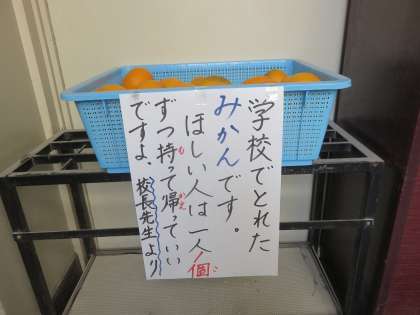 学校でとれた
みかんです。
ほしい人は一人1個
こ
ずつ持って帰っていい
も
かえ
ですよ、校長先生より